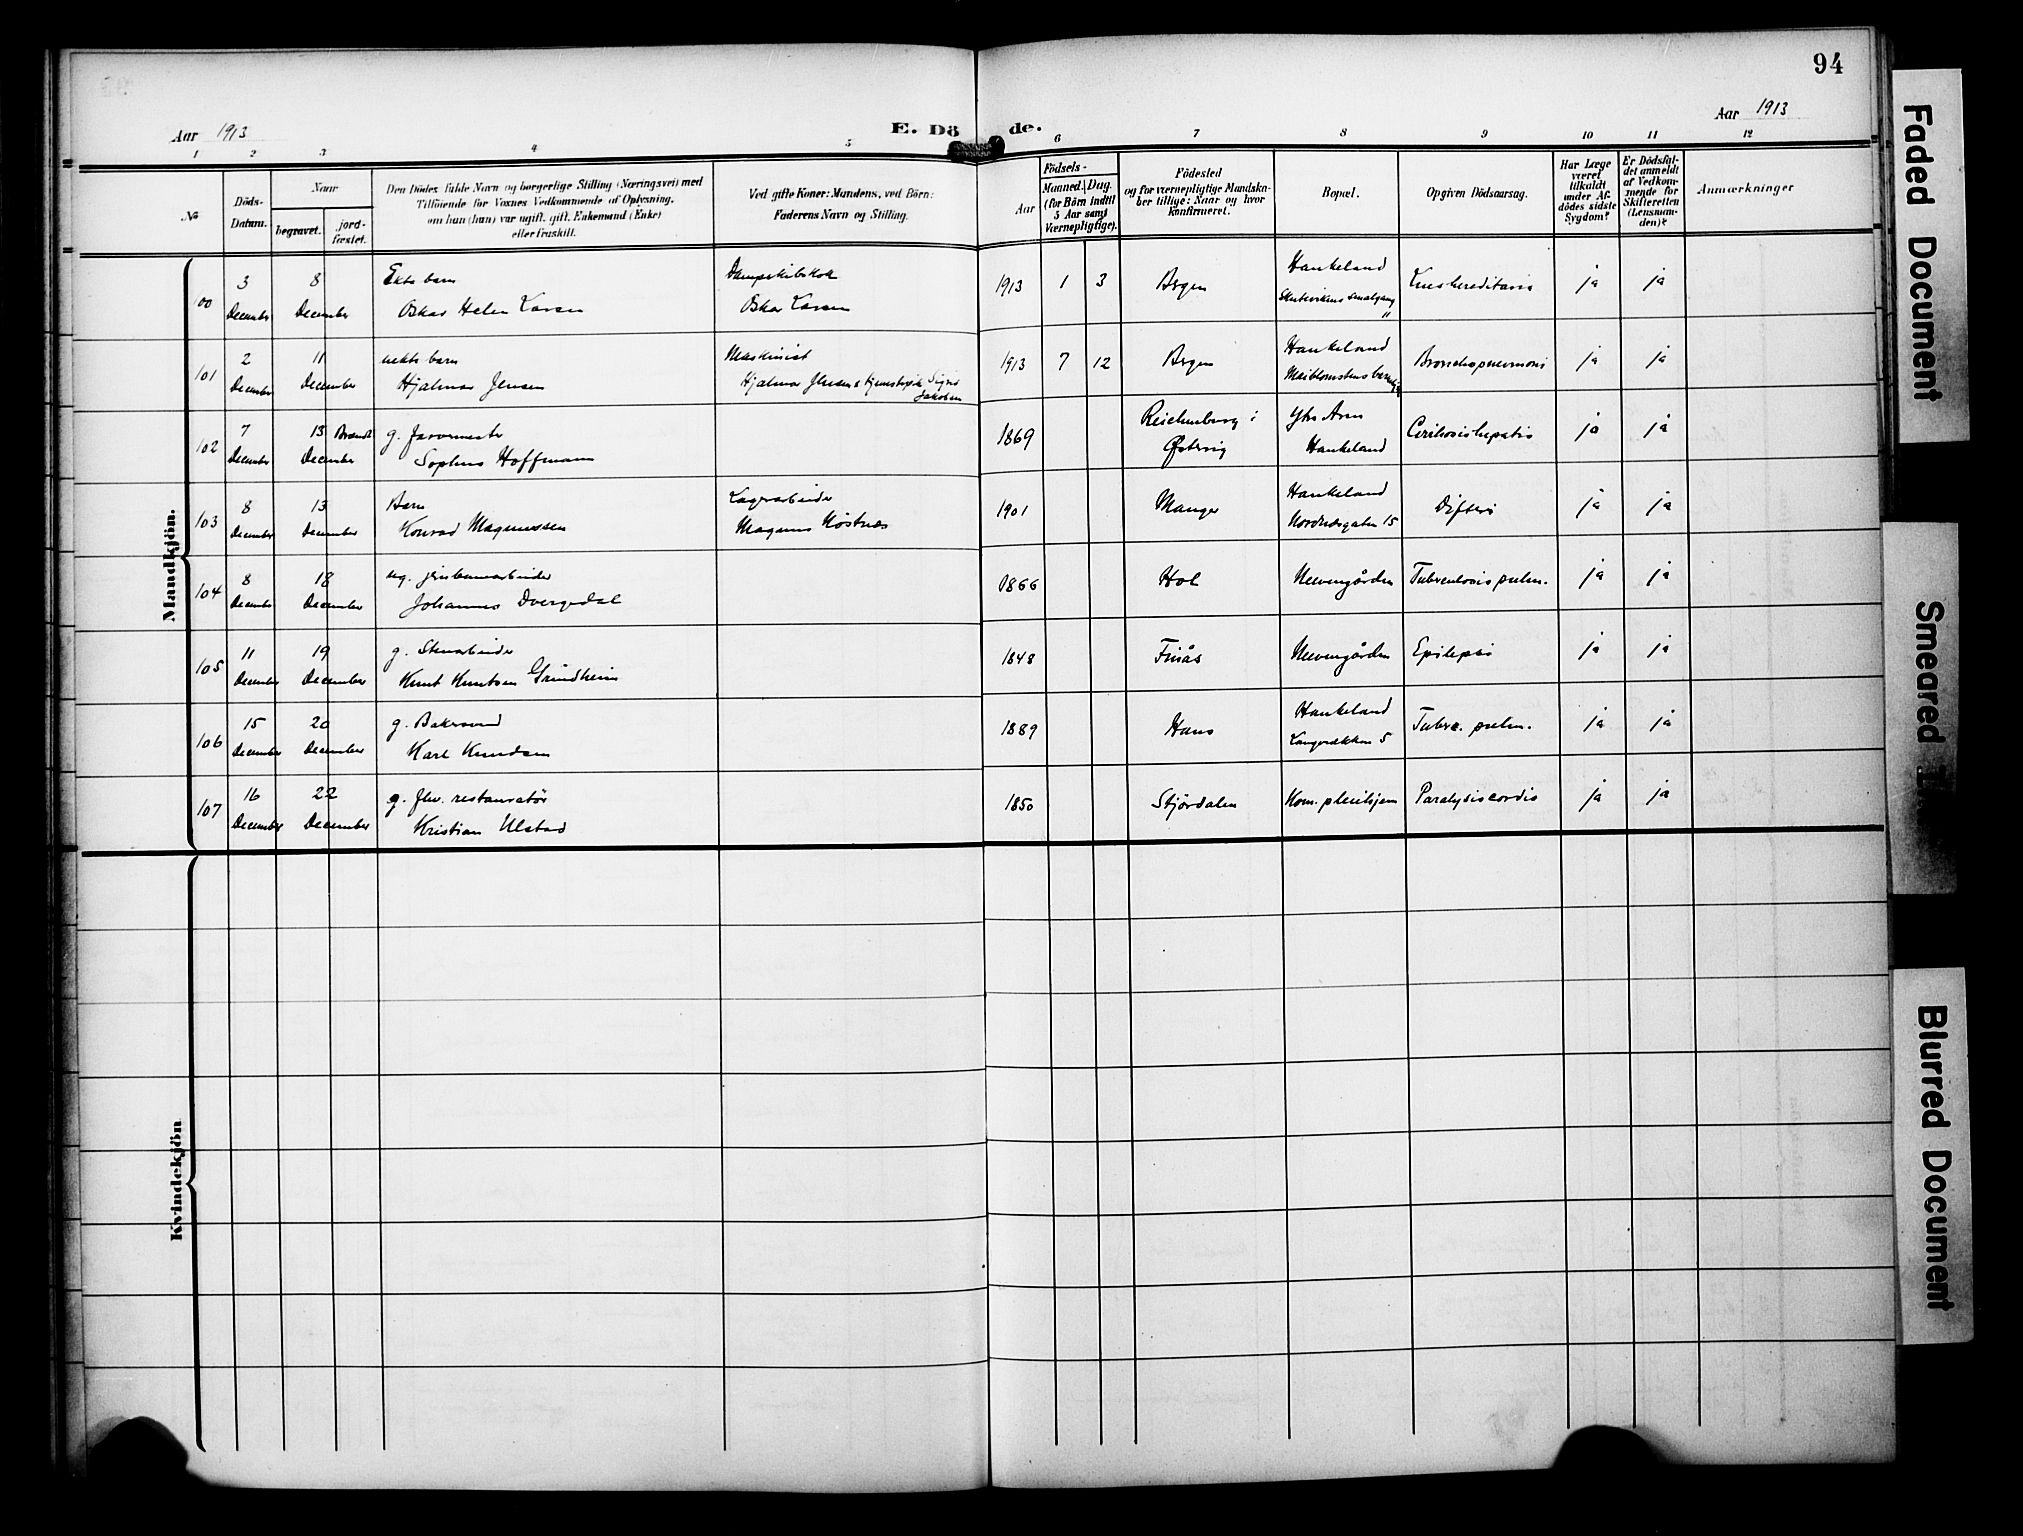 94
Aar 1913
E. Dö de.
Aar 1913
1 2 3 4 5 6 7 8 9 10 11 12
No
Döds-
Datum.
Naar
begravet.
jord-
fæstet.
Den Dödes fulde Navn og borgerlige Stilling (Næringsvei) med
Tilföiende for Voxnes Vedkommende af Oplysning,
om hun (han) var ugift, gift, Enkemand (Enke)
eller fraskilt.
Ved gifte Koner: Mandens, ved Börn:
Faderens Navn og Stilling.
Födsels-
Aar
Maaned.
Dag.
(for Börn indtil
5 Aar samt
Værnepligtige).
Födested
og for værnepligtige Mandska-
ber tillige: Naar og hvor
konfirmeret.
Bopæl.
Opgiven Dödsaarsag.
Har Læge
været
tilkaldt
under Af-
dödes sidste
Sygdom?
Er Dödsfal-
det anmeldt
af Vedkom-
mende for
Skifteretten
(Lensman-
den)?
Anmærkninger
Mandkjön.
00 3 December 8 December Ekte barn
Oskar Helen Larsen
Oskar Larsen
1913 1 3 Bergen Haukeland
ja ja
101 2 December 11 December uekte barn
Hjalmar Jensen
Maskinist
Hjalmar Jensen Sigrid
Jakobsen
1913 7 12 Bergen Haukeland
Bronchopneumoni ja ja
102 7 December 13 December Brændt g.
Sophus Hoffmann
1869 Reichenburg i
Østerrig
Ytre Arne
Haukeland
Cirrhosis hepatis ja ja
103 8 December 13 December Barn
Konrad Magnussen
Lagerarbeider
Magnus
1901 Manger Haukeland
Nordnesgaten 15
Difteri ja ja
104 8 December 18 December ug. jernbanearbeider
Johannes Dvergedal
1866 Hol Neevengården Tuberculosis pulm. ja ja
105 11 December 19 December g. Stenarbeider
Knut Knutsen Grindheim
1848 Finås Neevengården Epilepsi ja ja
106 15 December 20 December g. Bakersvend
Karl Knudsen
1889 Haus Haukeland
5
Tuberc. pulm. ja ja
107 16 December 22 December g. fhv. restauratør
Kristian Ulstad
1850 Stjørdalen Kom. pleiehjem Paralysis cordis ja ja
Kvindekjön
Faded Document
Smeared
Blurred Document